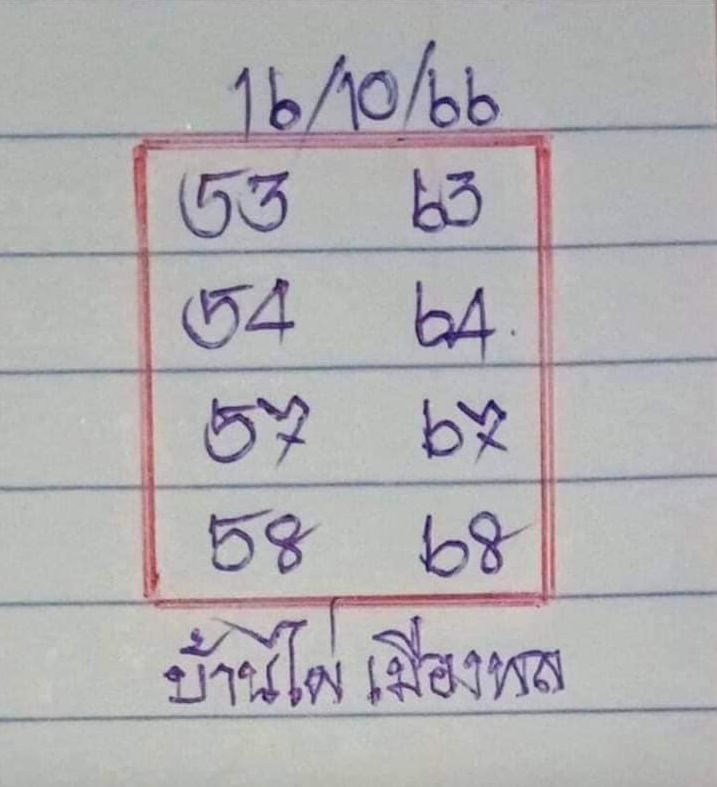 16/10/66
53 63
54 64
57 67
58 68
บ้านไผ่ เมืองพล